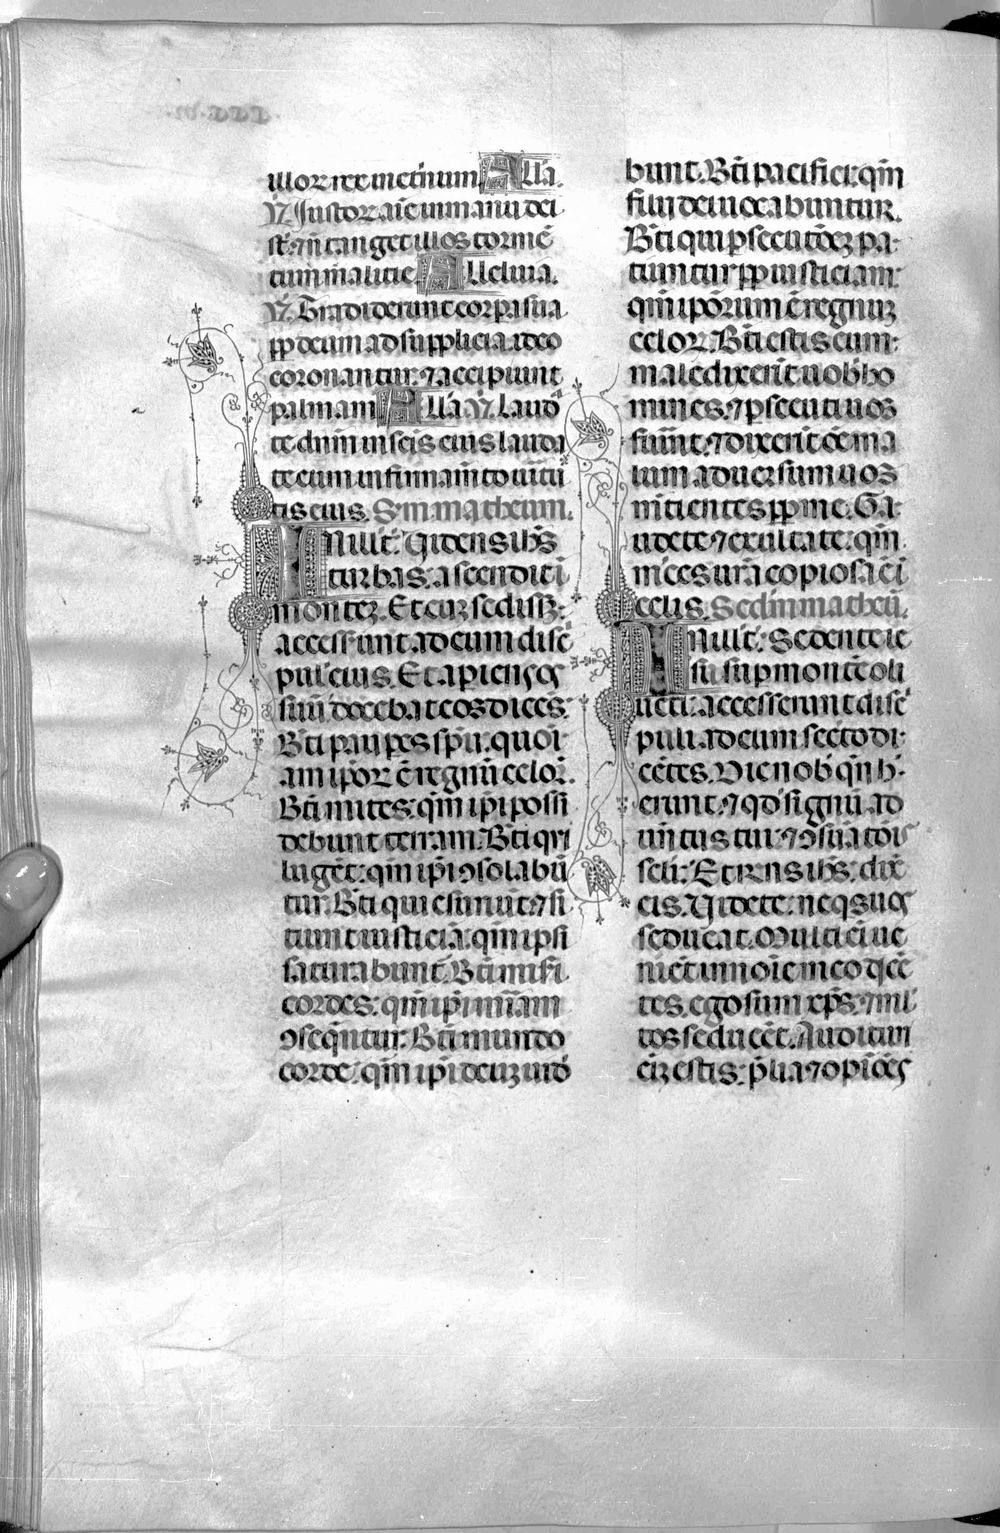 illoꝝ rex in et̄num. All̄a.
℣. Iustoꝝ aīe in manu dei
st̄: ⁊ n̄ tanget illos tormē
tum malitie. Alleluia.
℣. Tradiderunt corpa sua
ꝓp deum ad supplicia. ideo
coronantur. ⁊ accipiunt
palmam. All̄a. ℣. Laud᷑
te dnm̄ in scīs eius lauda
te eum in firmam̄to ūtu
tis eius. S. matheum.
IN illo t̄. Videns ih̄s
turbas: ascendit ī
monteꝫ. Et cuꝫ sedissꝫ:
accesser̄unt ad eum disc̄
puli eius. Et apiens os
suū docebat eos dices:
Bt̄i pauꝑes spū. quoī
am ip̄oꝝ ē regnū celoꝝ.
Bt̄i mites: qm̄ ip̄i possi
debunt terram. Bt̄i qui
lugēt: qm̄ ip̄i ↄsolabū
tur. Bt̄i qui esuriūt. ⁊ si
tiunt iusticiā: qm̄ ipsi
saturabunt᷑. Bt̄i mis̄i
cordes: qm̄ ip̄i mīam
ↄseq̄ntur. Bt̄i mundo
corde: qm̄ ip̄i deuꝫ uid᷑
bunt. Bt̄i pacifici: qm̄
filii dei uocabuntur.
Bt̄i qui ꝑsecutōeꝫ pa
tiuntur ꝓp iusticiam:
qm̄ ip̄orum ē regnuꝫ
celoꝝ. Bt̄i estis cum:
maledixerīt uob ho
mines. ⁊ ꝑsecuti uos
fuīnt. ⁊ dixerīt ōe ma
lum aduersum uos
mentientes ꝓp me. Ga
udete ⁊ exultate. qm̄
m̄ces ur̄a copiosa ē ī
celis. Sed̄m matheū.
IN illo t̄: Sedente ie
su sup monte oli
ueti: accesserunt disc̄
puli ad eum secto di
cētes. Dic nob qn̄ h̄
erunt. ⁊ qd̄ signū ad
uētus tui. ⁊ ↄsūatōis
scl̄i: Et rn̄s ih̄s: dix̄
eis. Videte. ne qs uos
seducat. Multi ei ue
niēt in noīe meo dicē
tes. ego sum xp̄s. ⁊ ml̄
tos seducēt. Audituri
eīꝫ estis: p̄lia. ⁊ opiōes